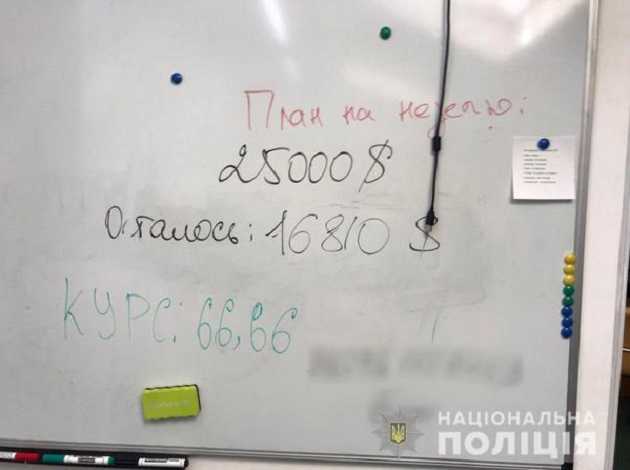 План на неделю:
25000$
Осталось: 16810 $
КУРС: 66,66
НАЦІОНАЛЬНА
ПОЛІЦІЯ